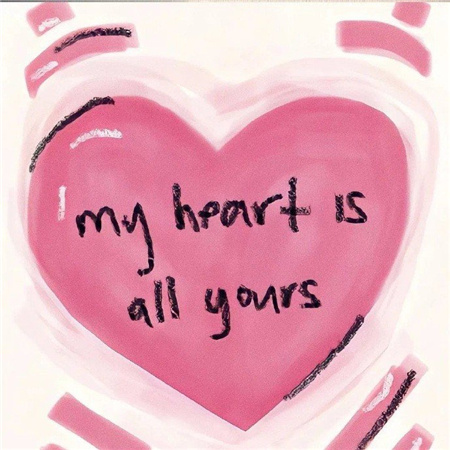 my heart is
all yours